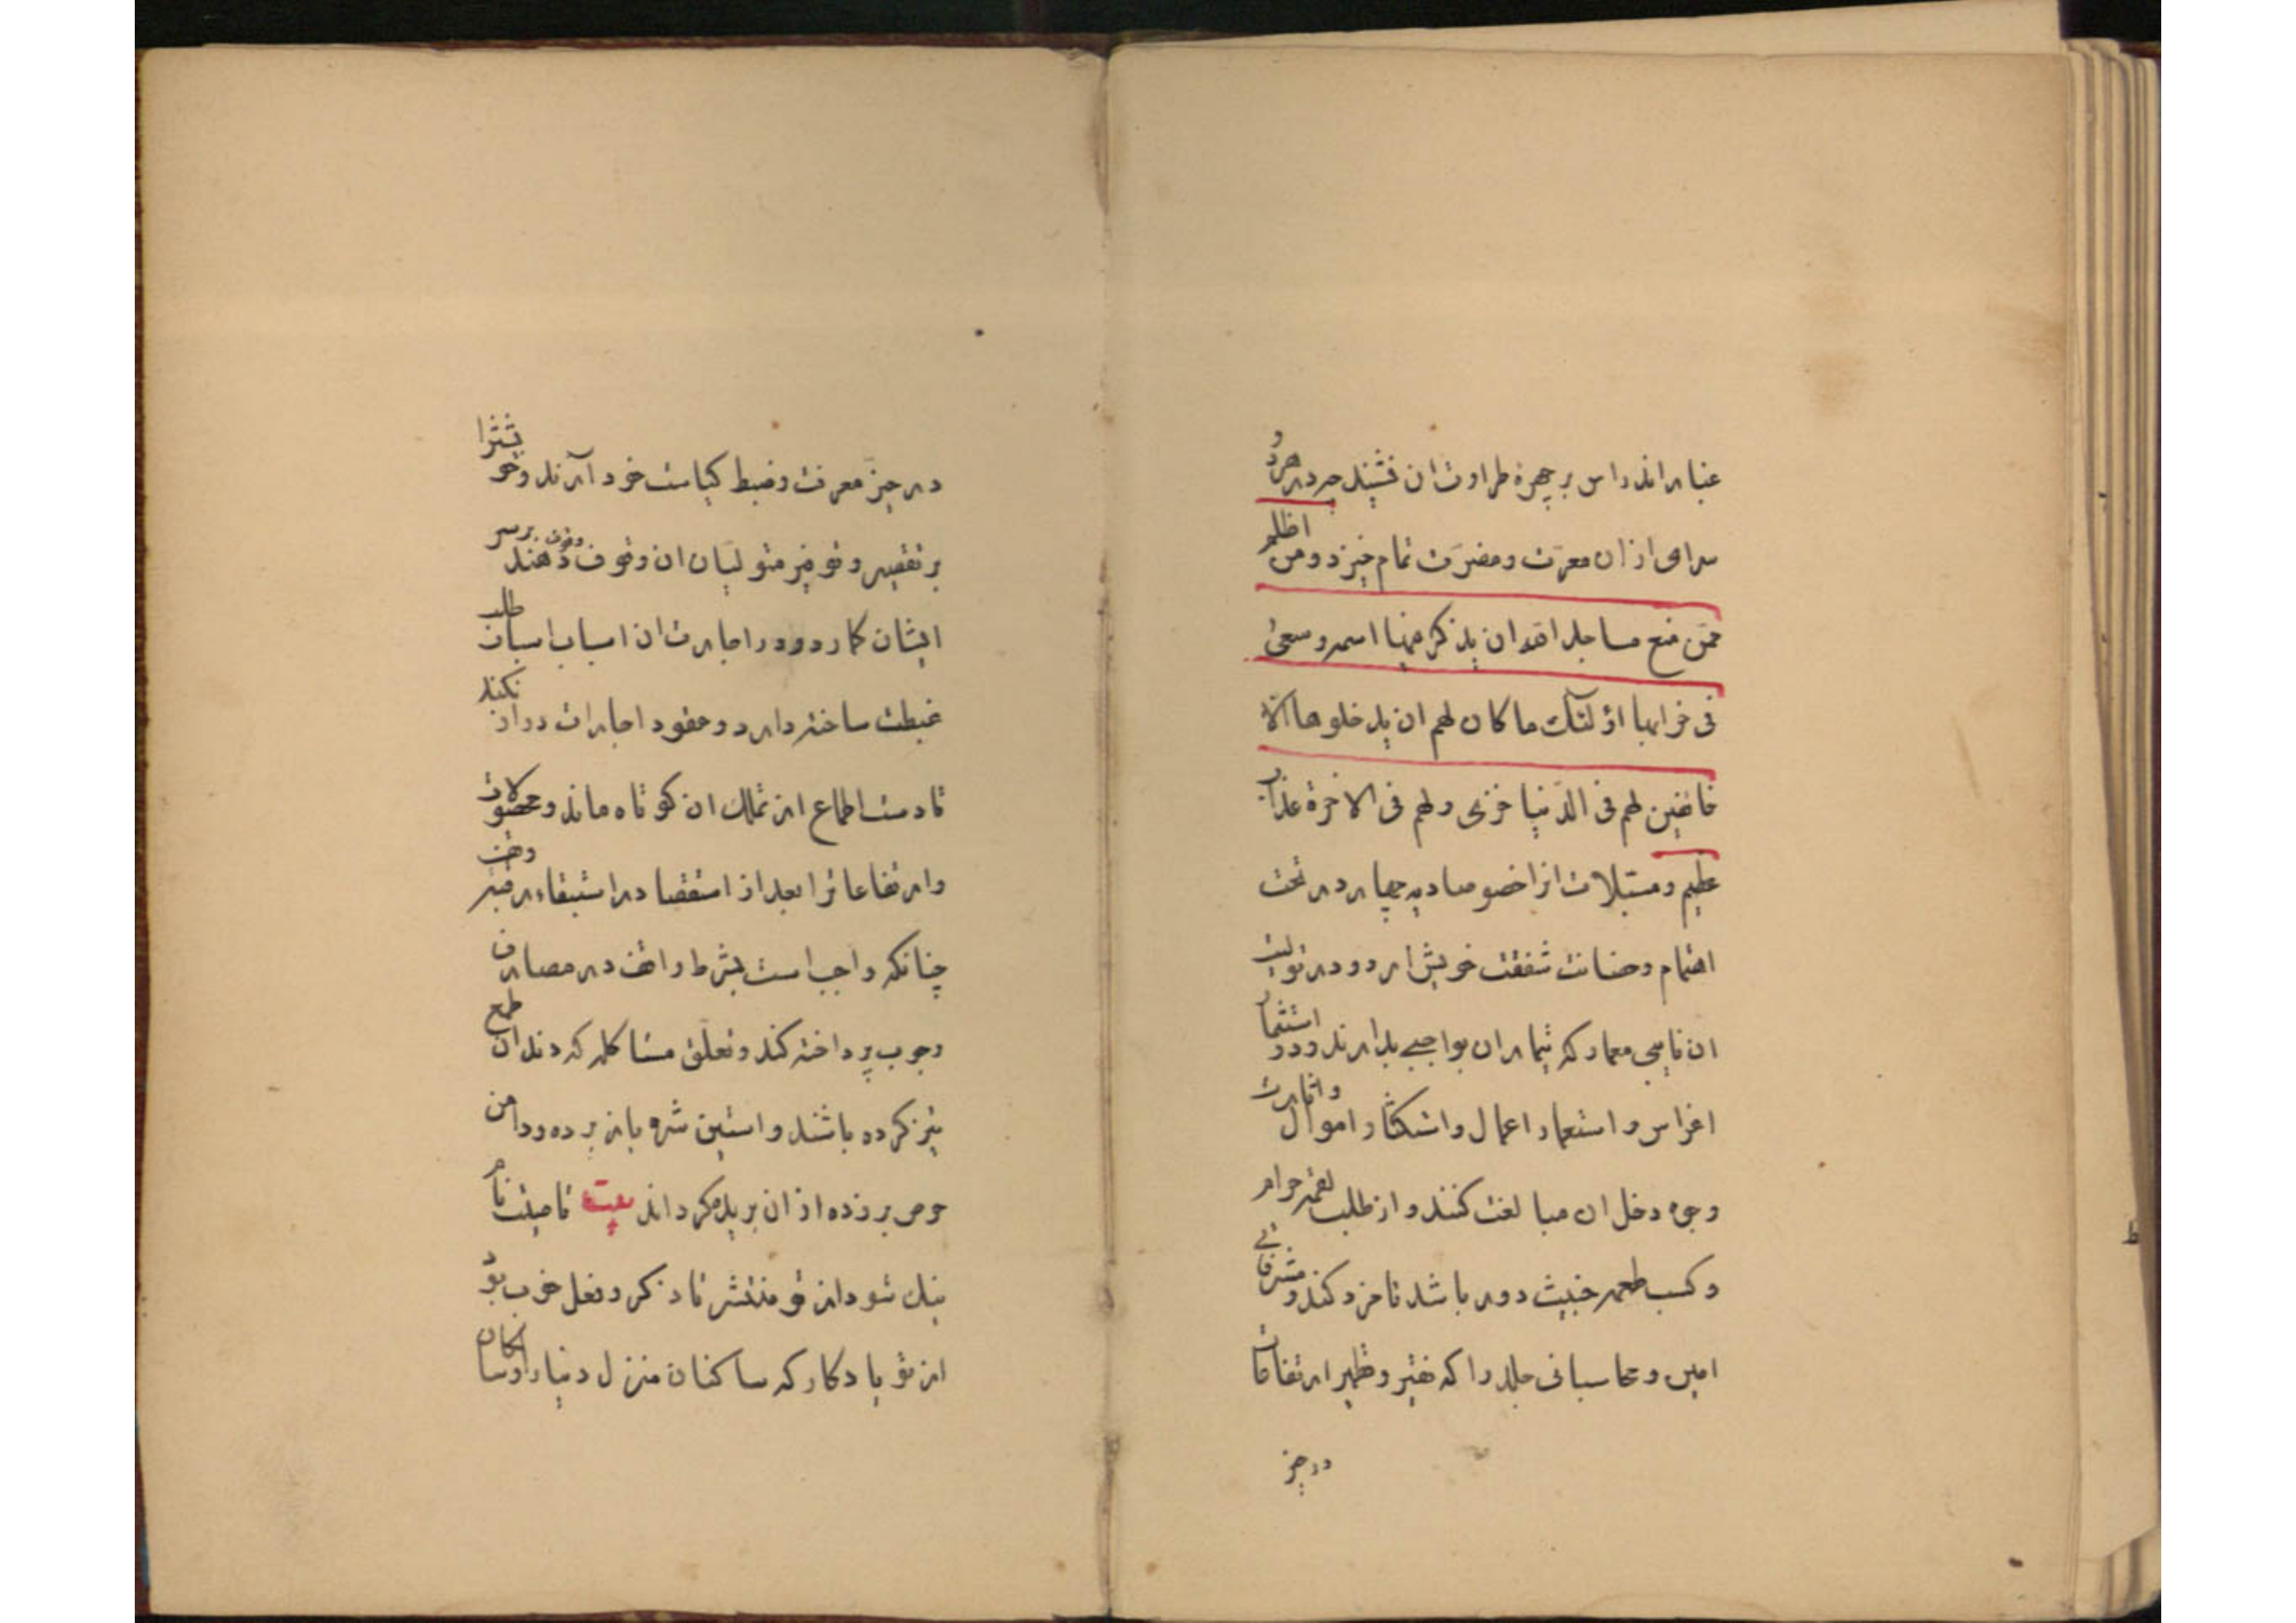 غبار اندراس بر چهرهٔ طراوت ان نشیند چه در هر دو
سرای از ان معرّت و مضرّت تمام خیزد و من اظلم
ممّن منع مساجد الله ان یذکر فیها اسمه و سعی
فی خرابها اولئک ما کان لهم ان یدخلوها الا
خائفین لهم فی الدّنیا خزی و لهم فی الاخرة عذاب
عظیم و مستبلات از اخضوصا دیه چهار در تحت
اهتمام و حضانت شفقت خویش ارد و در تولیت
ان نایبی معمار که تیمار ان بواجبی بدارند و در استثمار
اغراس و استعمار اعمال و استکثار اموال و اثارت
وجوه دخل ان مبالغت کنند و از طلب لقمهٔ حرام
و کسب طعمه خبیث دور باشد نامزد کند و مشرفانی
امین و محاسبانی جلد را که نقیر و قطمیر ارتفاعات
در حیز
در حیّز معرفت و ضبط کیاست خود آرند و
بر تقصیر و توفیر متولیان ان وقوف دهند وقوف بر سر
ایشان کمارد و در اجارت ان اسباب اسبات طلب
غبطت ساخته دارد و عقود اجارات دراز نکند
تا دست اطماع از تملک ان کوتاه ماند و محصولات
و ارتفاعات را بعد از استقصا در استیفاء
چنانکه واجب است بشرط واقف در مصارف
وجوب پرداخته کند و تعلق مشاکله که دندان طمع
تیز کرده باشند و استین شره باز برده و دامن
حرص بر زده از ان بریده کرداند بیت تا میتت نام
نیک شود از تو منتشر تا ذکر و فعل خوب بود
از تو یادکار که ساکنان منزل دنیا را و